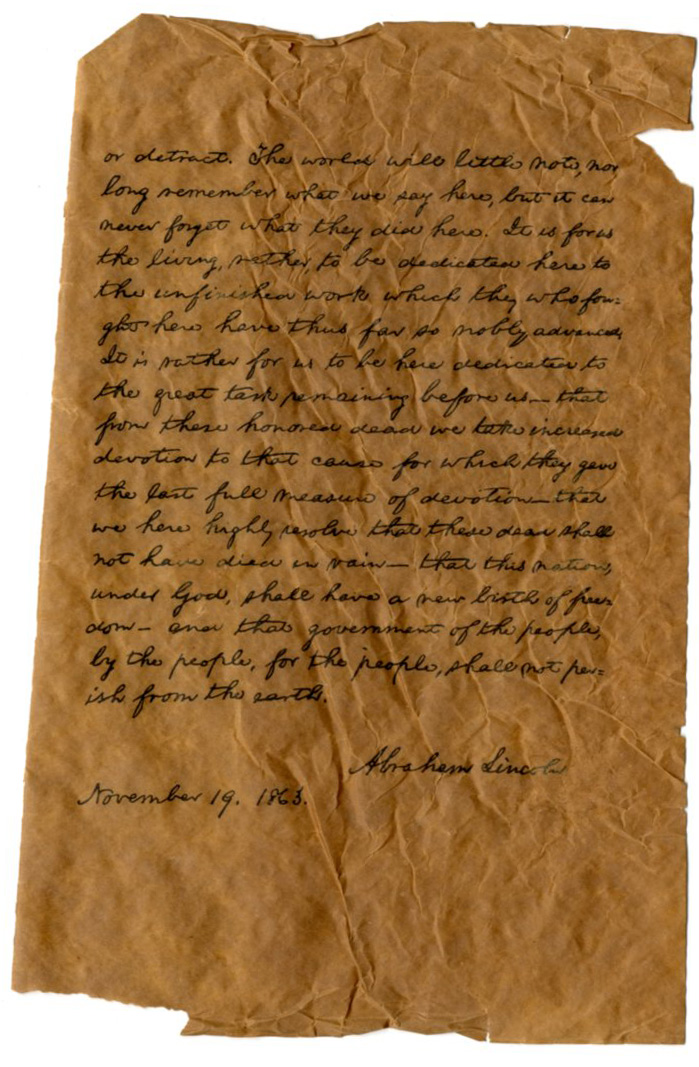 or detract. The world will little note, nor
long remember what we say here, but it can
never forget what they did here. It is for us
the living, rather, to be dedicated here to
the unfinished work which they who fou=
ght here have thus far so nobly advanced.
It is rather for us to be here dedicated to
the great task remaining before us— that
from these honored dead we take increased
devotion to that cause for which they gave
the last full measure of devotion— that
we here highly resolve that these dead shall
not have died in vain— that this nation,
under God, shall have a new birth of free=
dom— and that government of the people,
by the people, for the people, shall not per=
ish from the earth.
Abraham Lincoln
November 19. 1863.